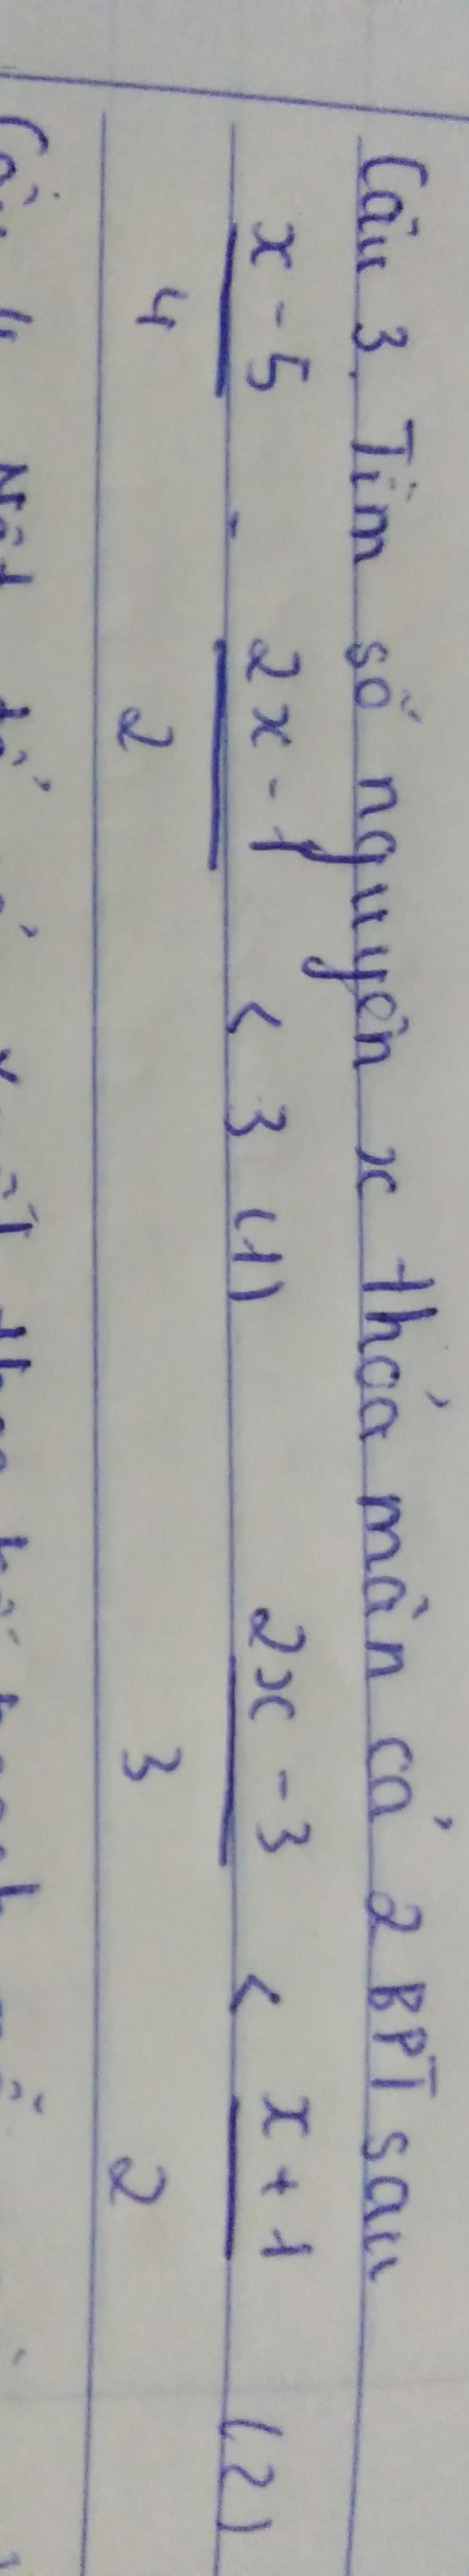 Câu 3. Tìm số nguyên x thỏa mãn cả 2 BPT sau
x - 5 / 4 - 2x - 1 / 2 < 3 (1) 2x - 3 / 3 < x + 1 / 2 (2)